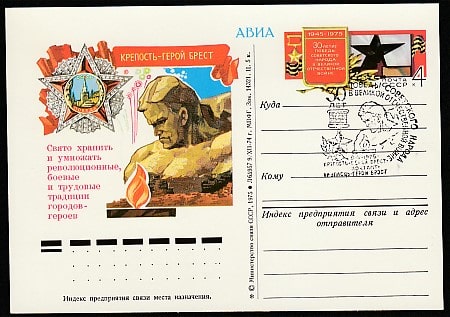 КРЕПОСТЬ-ГЕРОЙ БРЕСТ
Свято хранить
и умножать
революционные,
боевые
и трудовые
традиции
городов-
героев
Индекс предприятия связи места назначения.
АВИА
1945-1975
30-ЛЕТИЕ
ПОБЕДЫ
СОВЕТСКОГО
НАРОДА
В ВЕЛИКОЙ
ОТЕЧЕСТВЕННОЙ
ВОЙНЕ
ПОЧТА
СССР
4
К
30
ЛЕТ
ПОБЕДЫ СОВЕТСКОГО НАРОДА
В ВЕЛИКОЙ ОТЕЧЕСТВЕННОЙ ВОЙНЕ
КРЕПОСТЬ-ГЕРОЙ БРЕСТ
Куда
Кому
Индекс предприятия связи и адрес
отправителя
© Министерство связи СССР, 1975